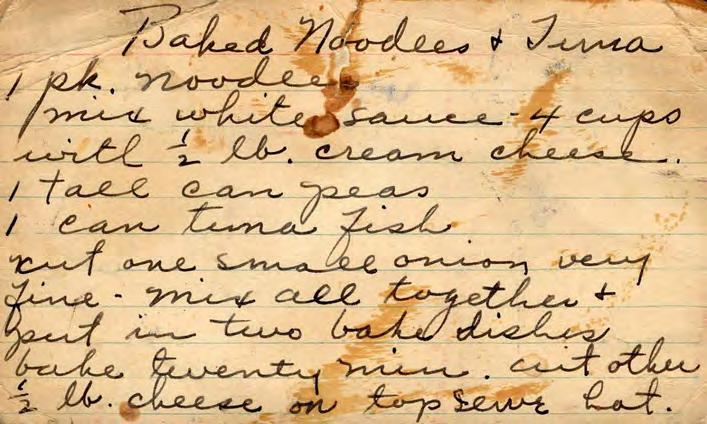 Baked Noodles & Tuna
1 pk. noodles
mix white sauce - 4 cups
with ½ lb. cream cheese.
1 tall can peas
1 can tuna fish
cut one small onion very
fine - mix all together &
put in two bake dishes
bake twenty min. cut other
½ lb. cheese on top serve hot.